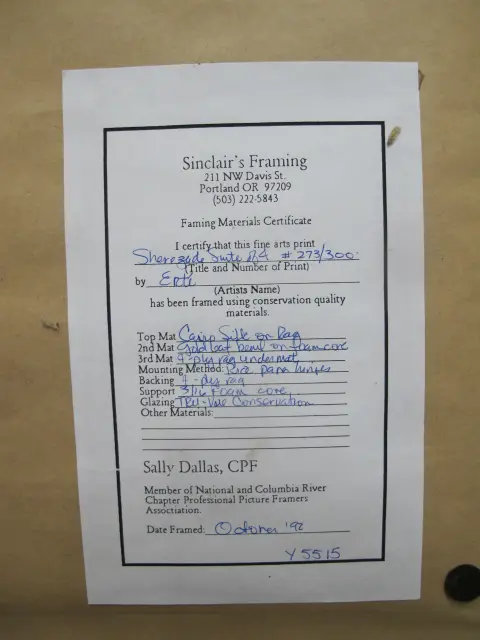 Sinclair's Framing
211 NW Davis St.
Portland OR 97209
(503) 222-5843
Faming Materials Certificate
I certify that this fine arts print
Sherezade Suite #273/300
(Title and Number of Print)
by Erte
(Artists Name)
has been framed using conservation quality
materials.
Top Mat Silk on Rag
2nd Mat Gold leaf bevel on foamcore
3rd Mat 4-ply rag undermat
Mounting Method: Rice paper hinges
Backing 4-ply rag
Support 3/16 Foam core
Glazing Tru-Vue Conservation
Other Materials:
Sally Dallas, CPF
Member of National and Columbia River
Chapter Professional Picture Framers
Association.
Date Framed: October '92
Y5515